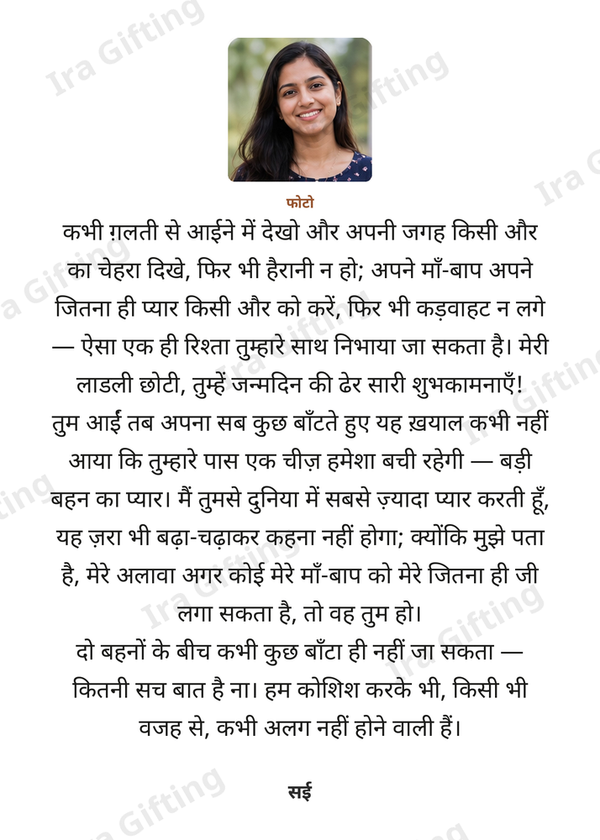 Ira Gifting
फोटो
कभी ग़लती से आईने में देखो और अपनी जगह किसी और
का चेहरा दिखे, फिर भी हैरानी न हो; अपने माँ-बाप अपने
जितना ही प्यार किसी और को करें, फिर भी कड़वाहट न लगे
— ऐसा एक ही रिश्ता तुम्हारे साथ निभाया जा सकता है। मेरी
लाडली छोटी, तुम्हें जन्मदिन की ढेर सारी शुभकामनाएँ!
तुम आईं तब अपना सब कुछ बाँटते हुए यह ख़याल कभी नहीं
आया कि तुम्हारे पास एक चीज़ हमेशा बची रहेगी — बड़ी
बहन का प्यार। मैं तुमसे दुनिया में सबसे ज़्यादा प्यार करती हूँ,
यह ज़रा भी बढ़ा-चढ़ाकर कहना नहीं होगा; क्योंकि मुझे पता
है, मेरे अलावा अगर कोई मेरे माँ-बाप को मेरे जितना ही जी
लगा सकता है, तो वह तुम हो।
दो बहनों के बीच कभी कुछ बाँटा ही नहीं जा सकता —
कितनी सच बात है ना। हम कोशिश करके भी, किसी भी
वजह से, कभी अलग नहीं होने वाली हैं।
सई